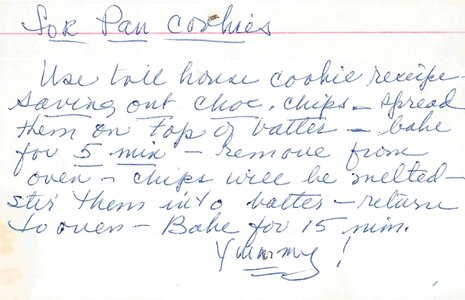 for Pan cookies
Use toll house cookie receipe
saving out choc. chips - spread
them on top of batter - bake
for 5 min - remove from
oven - chips will be melted -
stir them into batter - return
to oven - Bake for 15 min.
Yummy!